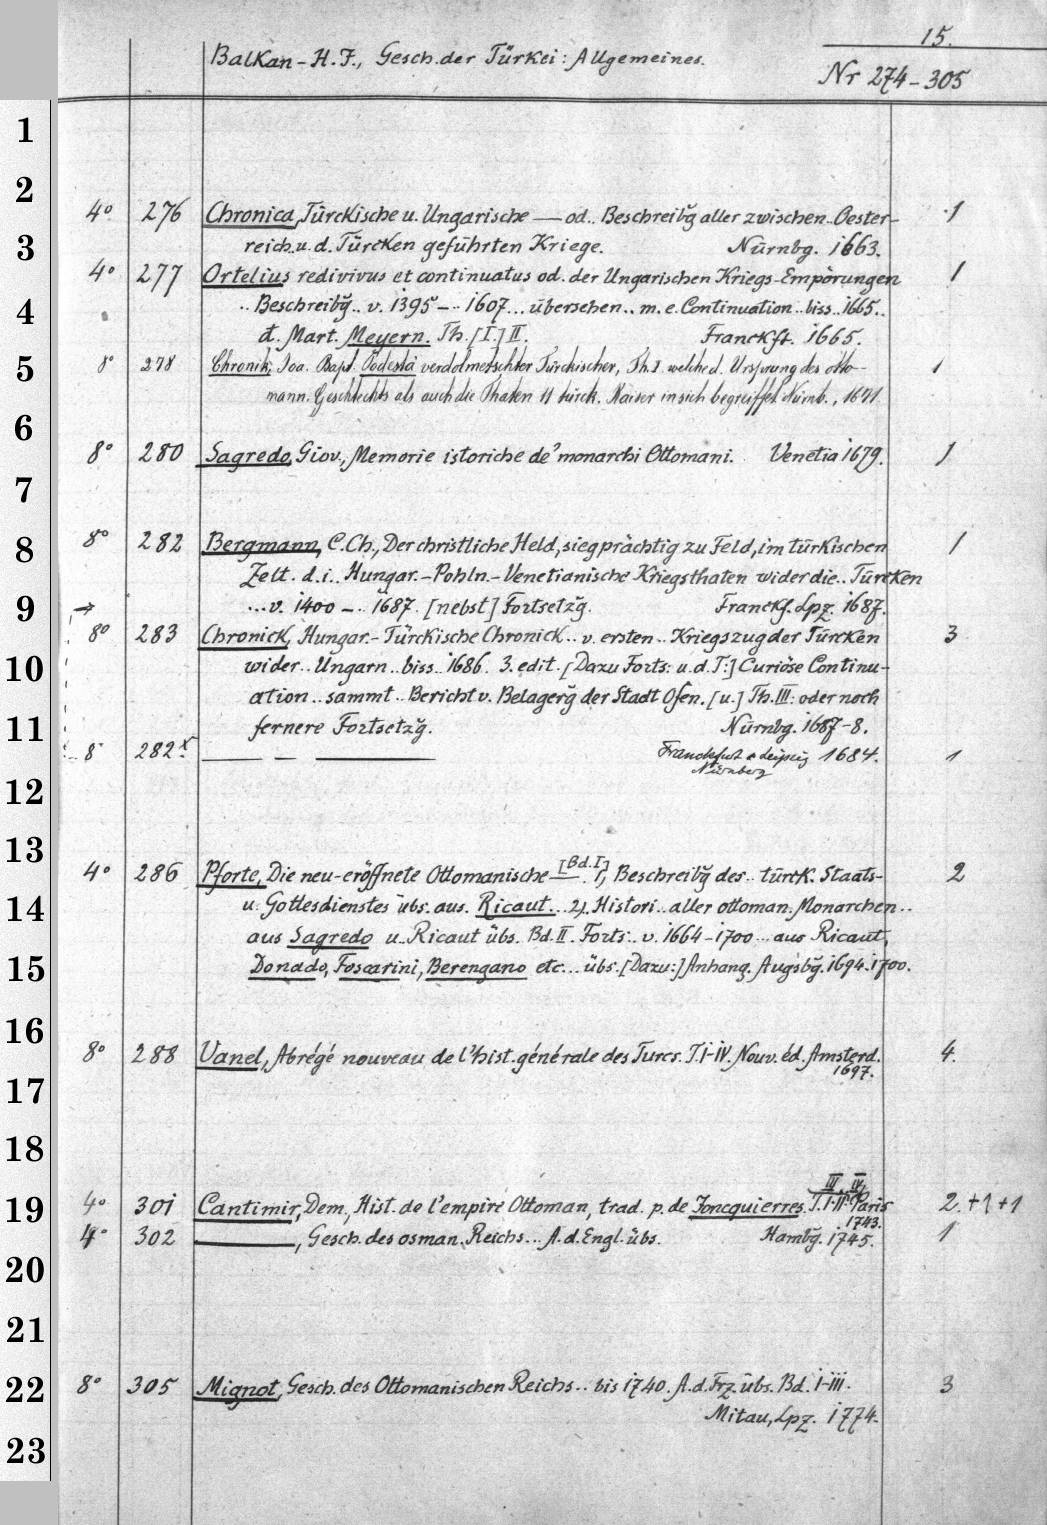 15.
Balkan-H.J., Gesch. der Türkei: Allgemeines.
Nr 274-305
1
2
4° 276 Chronica, Türckische u. Ungarische — od.. Beschreibg̃ aller zwischen.. Oester- 1
3 reich.u.d. Türcken geführten Kriege. Nürnbg. 1663.
4° 277 Ortelius redivivus et continuatus od. der Ungarischen Kriegs-Empörungen 1
4 .. Beschreibg̃.. v. 1395-.. 1607... übersehen.. m. e. Continuation.. biss.. 1665..
d. Mart. Meyern. Th. [I.] II. Franckft. 1665.
5 8° 278 Chronik, Joa. Bapt. Podestà verdolmetschter Türckischer, Th. I. welche d. Ursprung des otto- 1
mann. Geschlechts als auch die Thaten 11 türck. Kaiser in sich begreiffet. Nürnb., 1671
6
8° 280 Sagredo, Giov., Memorie istoriche de' monarchi Ottomani. Venetia 1679. 1
7
8 8° 282 Bergmann, C. Ch., Der christliche Held, siegprächtig zu Feld, im türkischen 1
Zelt. d.i.. Hungar.-Pohln.-Venetianische Kriegsthaten wider die.. Türcken
9 ...v. 1400-.. 1687. [nebst] Fortsetzg̃. Franckf. Lpz. 1687.
8° 283 Chronick, Hungar.-Türckische Chronick.. v. ersten.. Kriegszug der Türcken 3
10 wider.. Ungarn.. biss.. 1686. 3. edit. [Dazu Forts: u.d. T:] Curiöse Continu-
ation.. sammt.. Bericht v. Belagerg̃ der Stadt Ofen. [u.] Th. III: oder noch
11 fernere Fortsetzg̃. Nürnbg. 1687-8.
8° 282x. — — — Franckfurt & Leipzig 1684. 1
Nürnberg
12
13
[Bd. I]
4° 286 Pforte, Die neu-eröffnete Ottomanische —. 1, Beschreibg̃ des.. türck. Staats- 2
14 u. Gottesdienstes übs. aus. Ricaut... 2). Histori.. aller ottoman. Monarchen..
aus Sagredo u. Ricaut übs. Bd. II. Forts:. v. 1664-1700... aus Ricaut,
15 Donado, Foscarini, Berengano etc... übs. [Dazu:] Anhang. Augsbg̃. 1694. 1700.
16
8° 288 Vanel, Abrégé nouveau de l'hist. générale des Turcs. T. I-IV. Nouv. éd. Amsterd. 4.
1697.
17
18
III, IV,
19 4° 301 Cantimir, Dem., Hist. de l'empire Ottoman, trad. p. de Joncquierres. T. I-II. Paris 2.+1+1
1743.
4° 302 —, Gesch. des osman. Reichs... A. d. Engl. übs. Hambg̃. 1745. 1
20
21
22 8° 305 Mignot, Gesch. des Ottomanischen Reichs.. bis 1740. A. d. Frz. übs. Bd. I-III. 3
Mitau, Lpz. 1774.
23